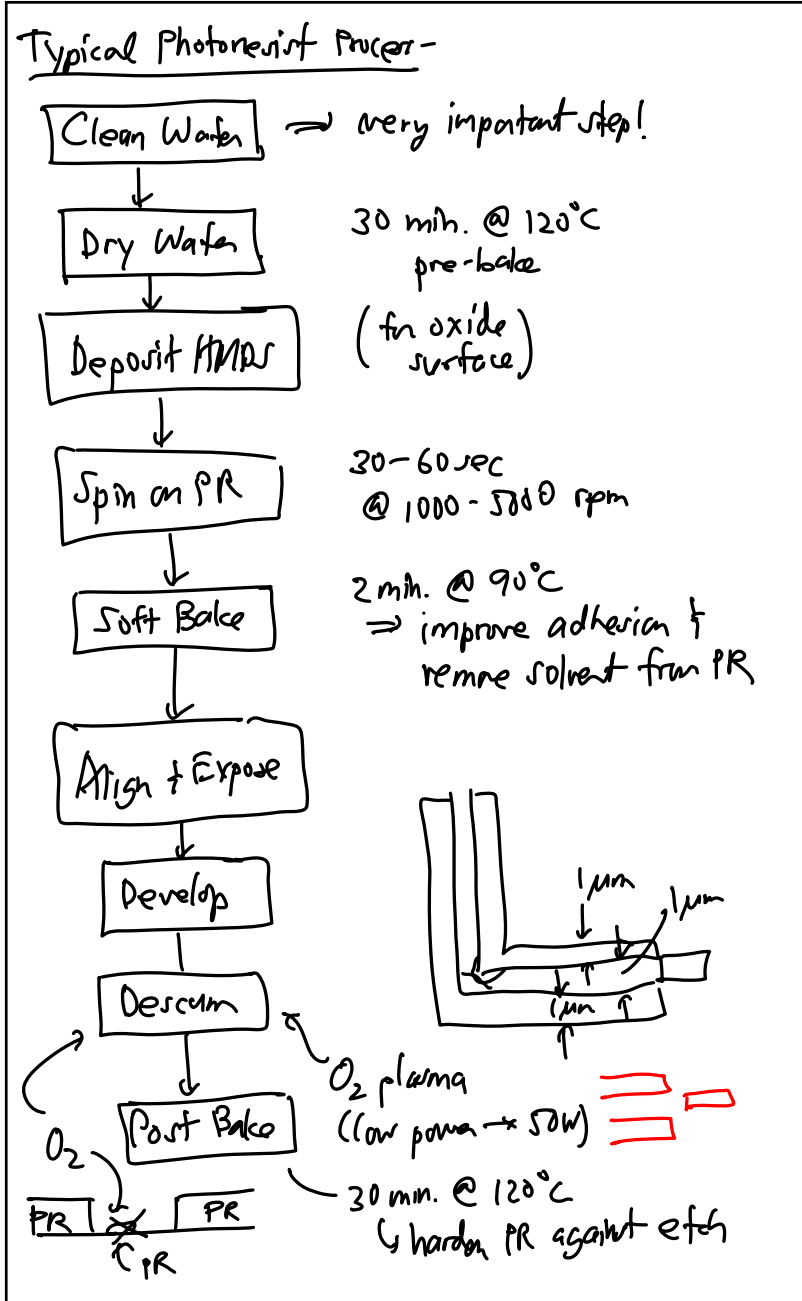 Typical Photoresist Process-
Clean Wafer ⇒ very important step!
Dry Wafer
30 min. @ 120°C
pre-bake
Deposit HMDS
(for oxide
surface)
Spin on PR
30-60 sec
@ 1000-5000 rpm
Soft Bake
2 min. @ 90°C
⇒ improve adhesion &
remove solvent from PR
Align & Expose
Develop
1 μm
1 μm
1 μm
Descum
O₂ plasma
(low power → 50W)
Post Bake
O₂
30 min. @ 120°C
↳ harden PR against etch
PR
PR
PR